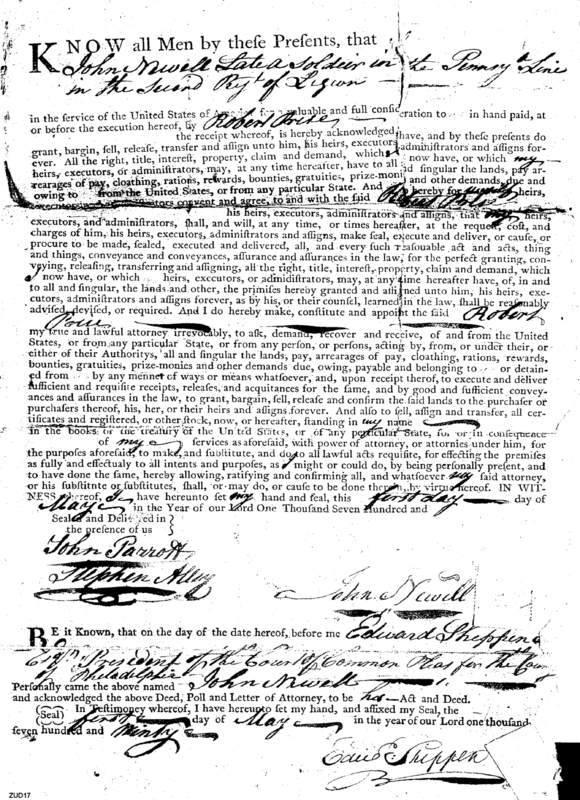 KNOW all Men by theſe Preſents, that
John Newell Late a Soldier in the Pennsya Line
in the Second Regt of Legion
in the ſervice of the United States of America for a valuable and full conſideration to in hand paid, at
or before the execution hereof, by Robert Poree
the receipt whereof, is hereby acknowledged, have, and by theſe preſents do
grant, bargin, ſell, releaſe, transfer and aſſign unto him, his heirs, executors, adminiſtrators and aſſigns for-
ever. All the right, title, intereſt, property, claim and demand, which I now have, or which my
heirs, executors, or adminiſtrators, may, at any time hereafter, have to all and ſingular the lands, pay ar-
rearages of pay, cloathing, rations, rewards, bounties, gratuities, prize-monies and other demands, due and
owing to from the United States, or from any particular State. And do hereby for heirs,
executors and adminiſtrators covenant and agree, to and with the ſaid Robert
his heirs, executors, adminiſtrators and aſſigns, that my heirs,
executors, and adminiſtrators, ſhall, and will, at any time, or times hereafter, at the requeſt, coſt, and
charges of him, his heirs, executors, adminiſtrators and aſſigns, make ſeal, execute and deliver, or cauſe, or
procure to be made, ſealed, executed and delivered, all, and every ſuch reaſonable act and acts, thing
and things, conveyance and conveyances, aſſurance and aſſurances in the law, for the perfect granting, con-
veying, releaſing, transferring and aſſigning, all the right, title, intereſt, property, claim and demand, which
I now have or which heirs, executors, or adminiſtrators, may, at any time hereafter have, of, in and
to all and ſingular, the lands and other, the primiſes hereby granted and aſſigned unto him, his heirs, exe-
cutors, adminiſtrators and aſſigns forever, as by his, or their counſel, learned in the law, ſhall be reaſonably
adviſed, deviſed, or required. And I do hereby make, conſtitute and appoint the ſaid Robert
my true and lawful attorney irrevocably, to aſk, demand, recover and receive, of and from the United
States, or from any particular State, or from any perſon, or perſons, acting by, from, or under their, or
either of their Authoritys, all and ſingular the lands, pay, arrearages of pay, cloathing, rations, rewards,
bounties, gratuities, prize-monies and other demands due, owing, payable and belonging to or detain-
ed from by any manner of ways or means whatſoever, and, upon receipt thereof, to execute and deliver
ſufficient and requiſite receipts, releaſes, and acquitances for the ſame, and by good and ſufficient convey-
ances and aſſurances in the law, to grant, bargain, ſell, releaſe and confirm the ſaid lands to the purchaſer or
purchaſers thereof, his, her, or their heirs and aſſigns forever. And alſo to ſell, aſſign and transfer, all cer-
tificates and regiſtered, or other ſtock, now, or hereafter, ſtanding in my name
in the books of the treaſury of the United States, or of any particular State, for or in conſequence
of my ſervices as aforeſaid, with power of attorney, or attornies under him, for
the purpoſes aforeſaid, to make and ſubſtitute, and do to all lawful acts requiſite, for effecting the premiſes
as fully and effectualy to all intents and purpoſes, as I might or could do, by being perſonally preſent, and
to have done the ſame, hereby allowing, ratifying and confirming all, and whatſoever my ſaid attorney,
or his ſubſtitute or ſubſtitutes, ſhall, or may do, or cauſe to be done therein, by virtue hereof. IN WIT-
NESS whereof, I have hereunto ſet my hand and ſeal, this firſt day day of
May in the Year of our Lord One Thouſand Seven Hundred and
Sealed and Delivered in
the preſence of us
John Parrott
Stephen Alley
John Newell
BE it Known, that on the day of the date hereof, before me Edward Shippen
Eſqr Preſident of the Court of Common Pleas for the County
of Philadelphia
Perſonally came the above named John Newell
and acknowledged the above Deed, Poll and Letter of Attorney, to be his Act and Deed.
(Seal) In Teſtimoney whereof, I have hereunto ſet my hand, and affixed my Seal, the
firſt day of May in the year of our Lord one thouſand
ſeven hundred and ninety
Edwd Shippen
ZUD17